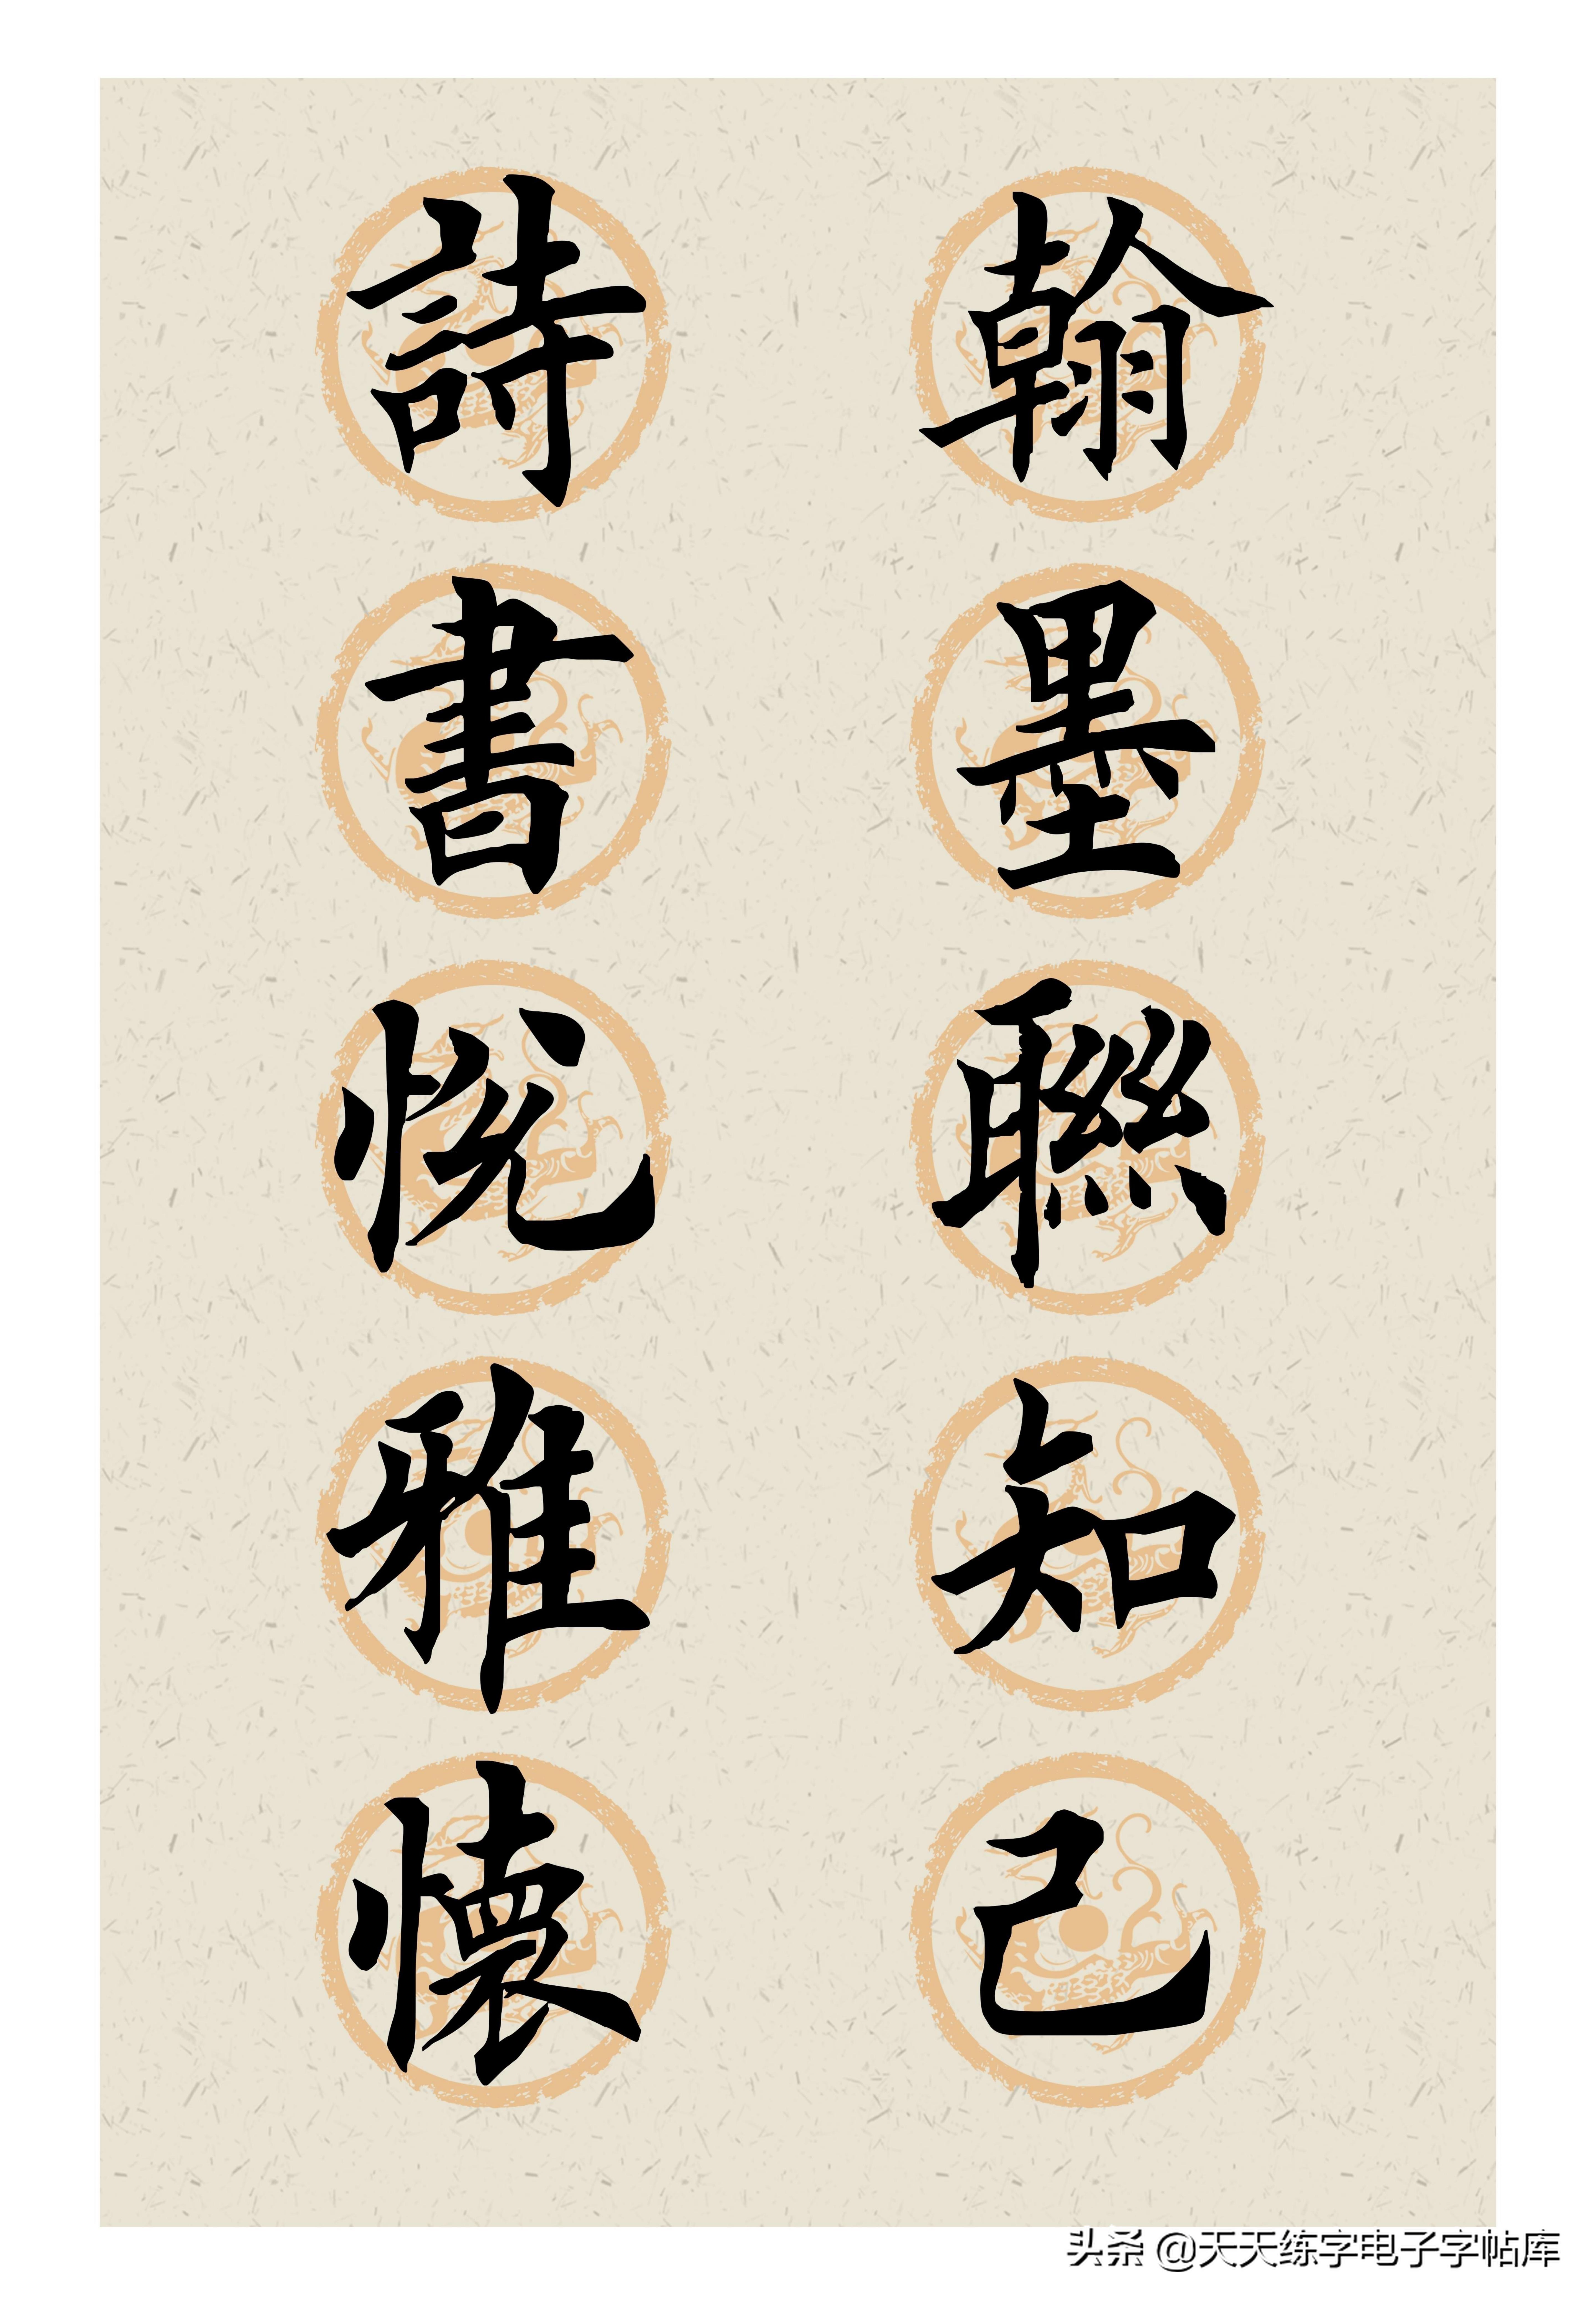 翰墨聯知己
詩書悦雅懷
头条 @天天练字电子字帖库